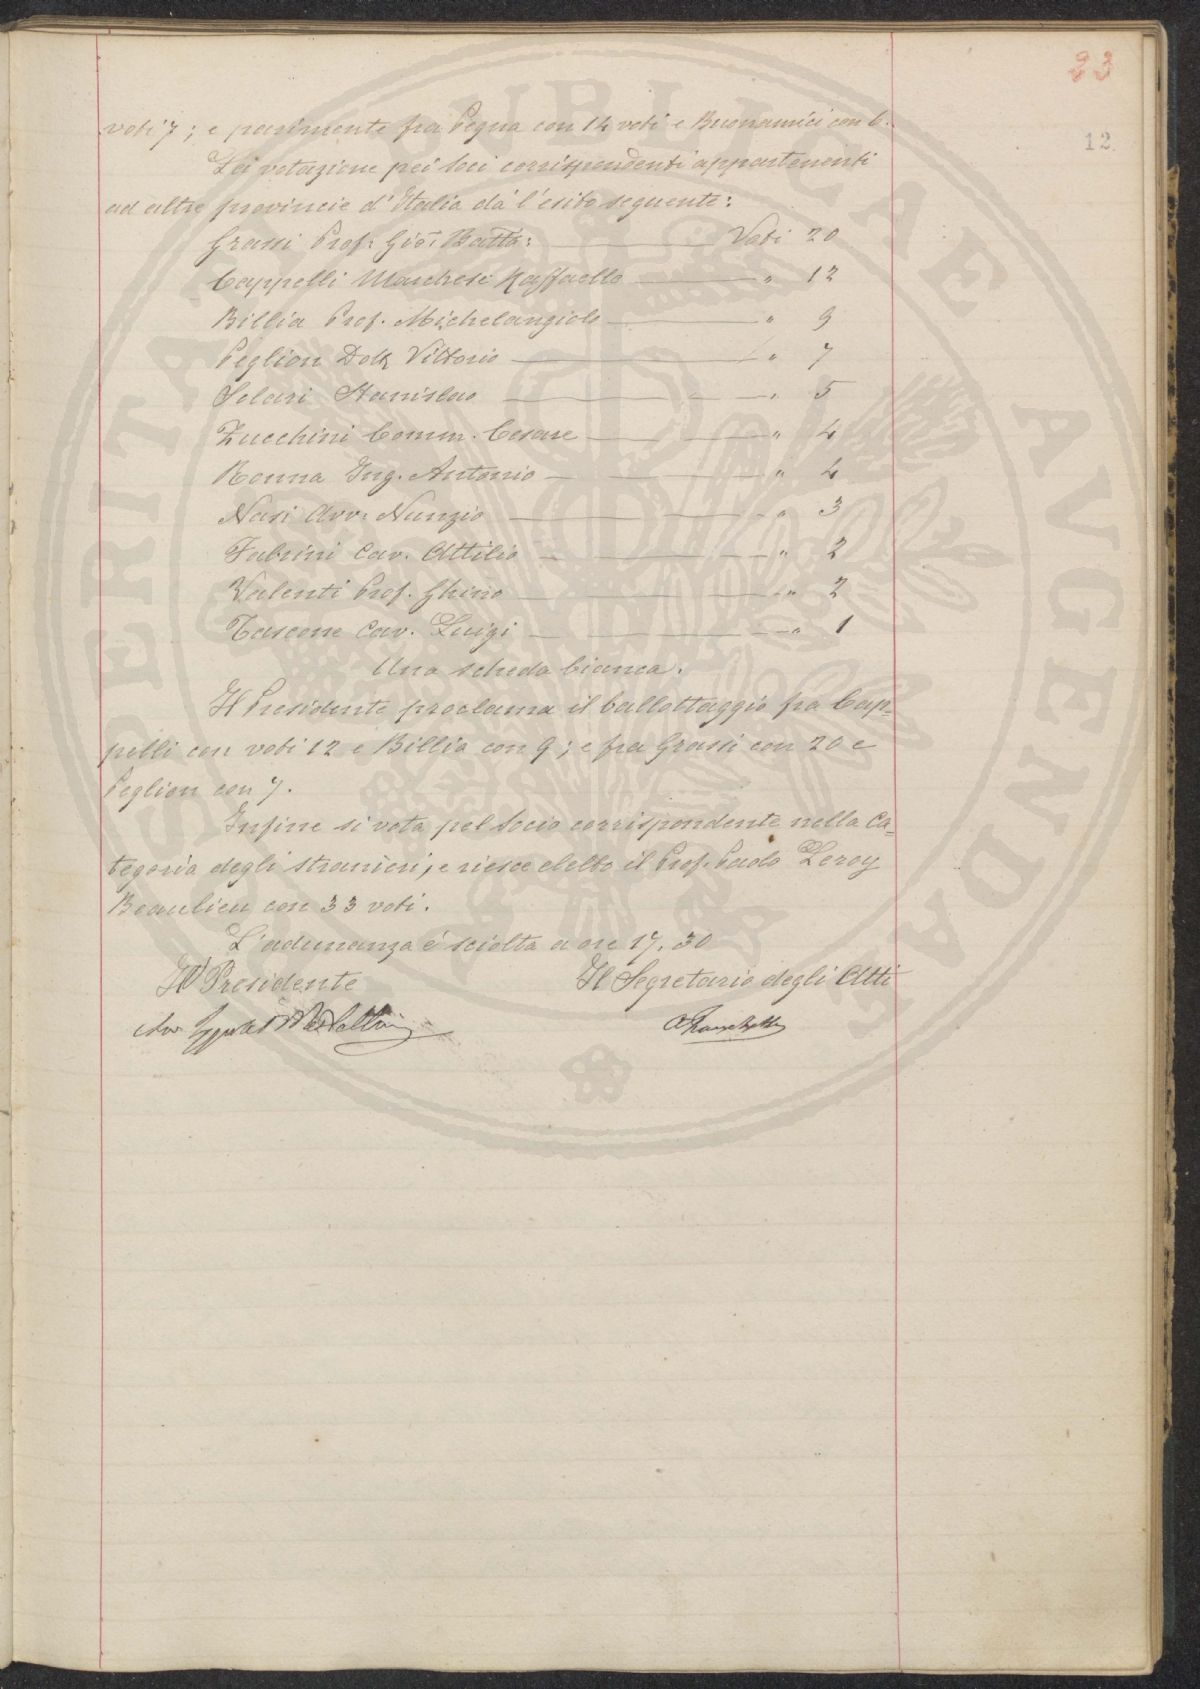 23
12
voti 7; e parimente fra Pegna con 14 voti e Buonamici con 6.
La votazione pei Soci corrispondenti appartenenti
ad altre provincie d'Italia dà l'esito seguente:
Grassi Prof. Gio: Batta: Voti 20
Cappelli Marchese Raffaello " 12
Billia Prof. Michelangiolo " 9
Peglion Dott. Vittorio " 7
Solari Stanislao " 5
Zucchini Comm. Cesare " 4
Ronna Ing. Antonio " 4
Nasi Avv. Nunzio " 3
Fabrini Cav. Attilio " 2
Valenti Prof. Ghino " 2
Tascone Cav. Luigi " 1
Una scheda bianca.
Il Presidente proclama il ballottaggio fra Cap=
pelli con voti 12 e Billia con 9; e fra Grassi con 20 e
Peglion con 7.
Infine si vota pel Socio corrispondente nella Ca=
tegoria degli stranieri, e riesce eletto il Prof. Paolo Leroy
Beaulieu con 33 voti.
L'adunanza é sciolta a ore 17,30
Il Presidente Il Segretario degli Atti
PUBLICAE AVGENDAE